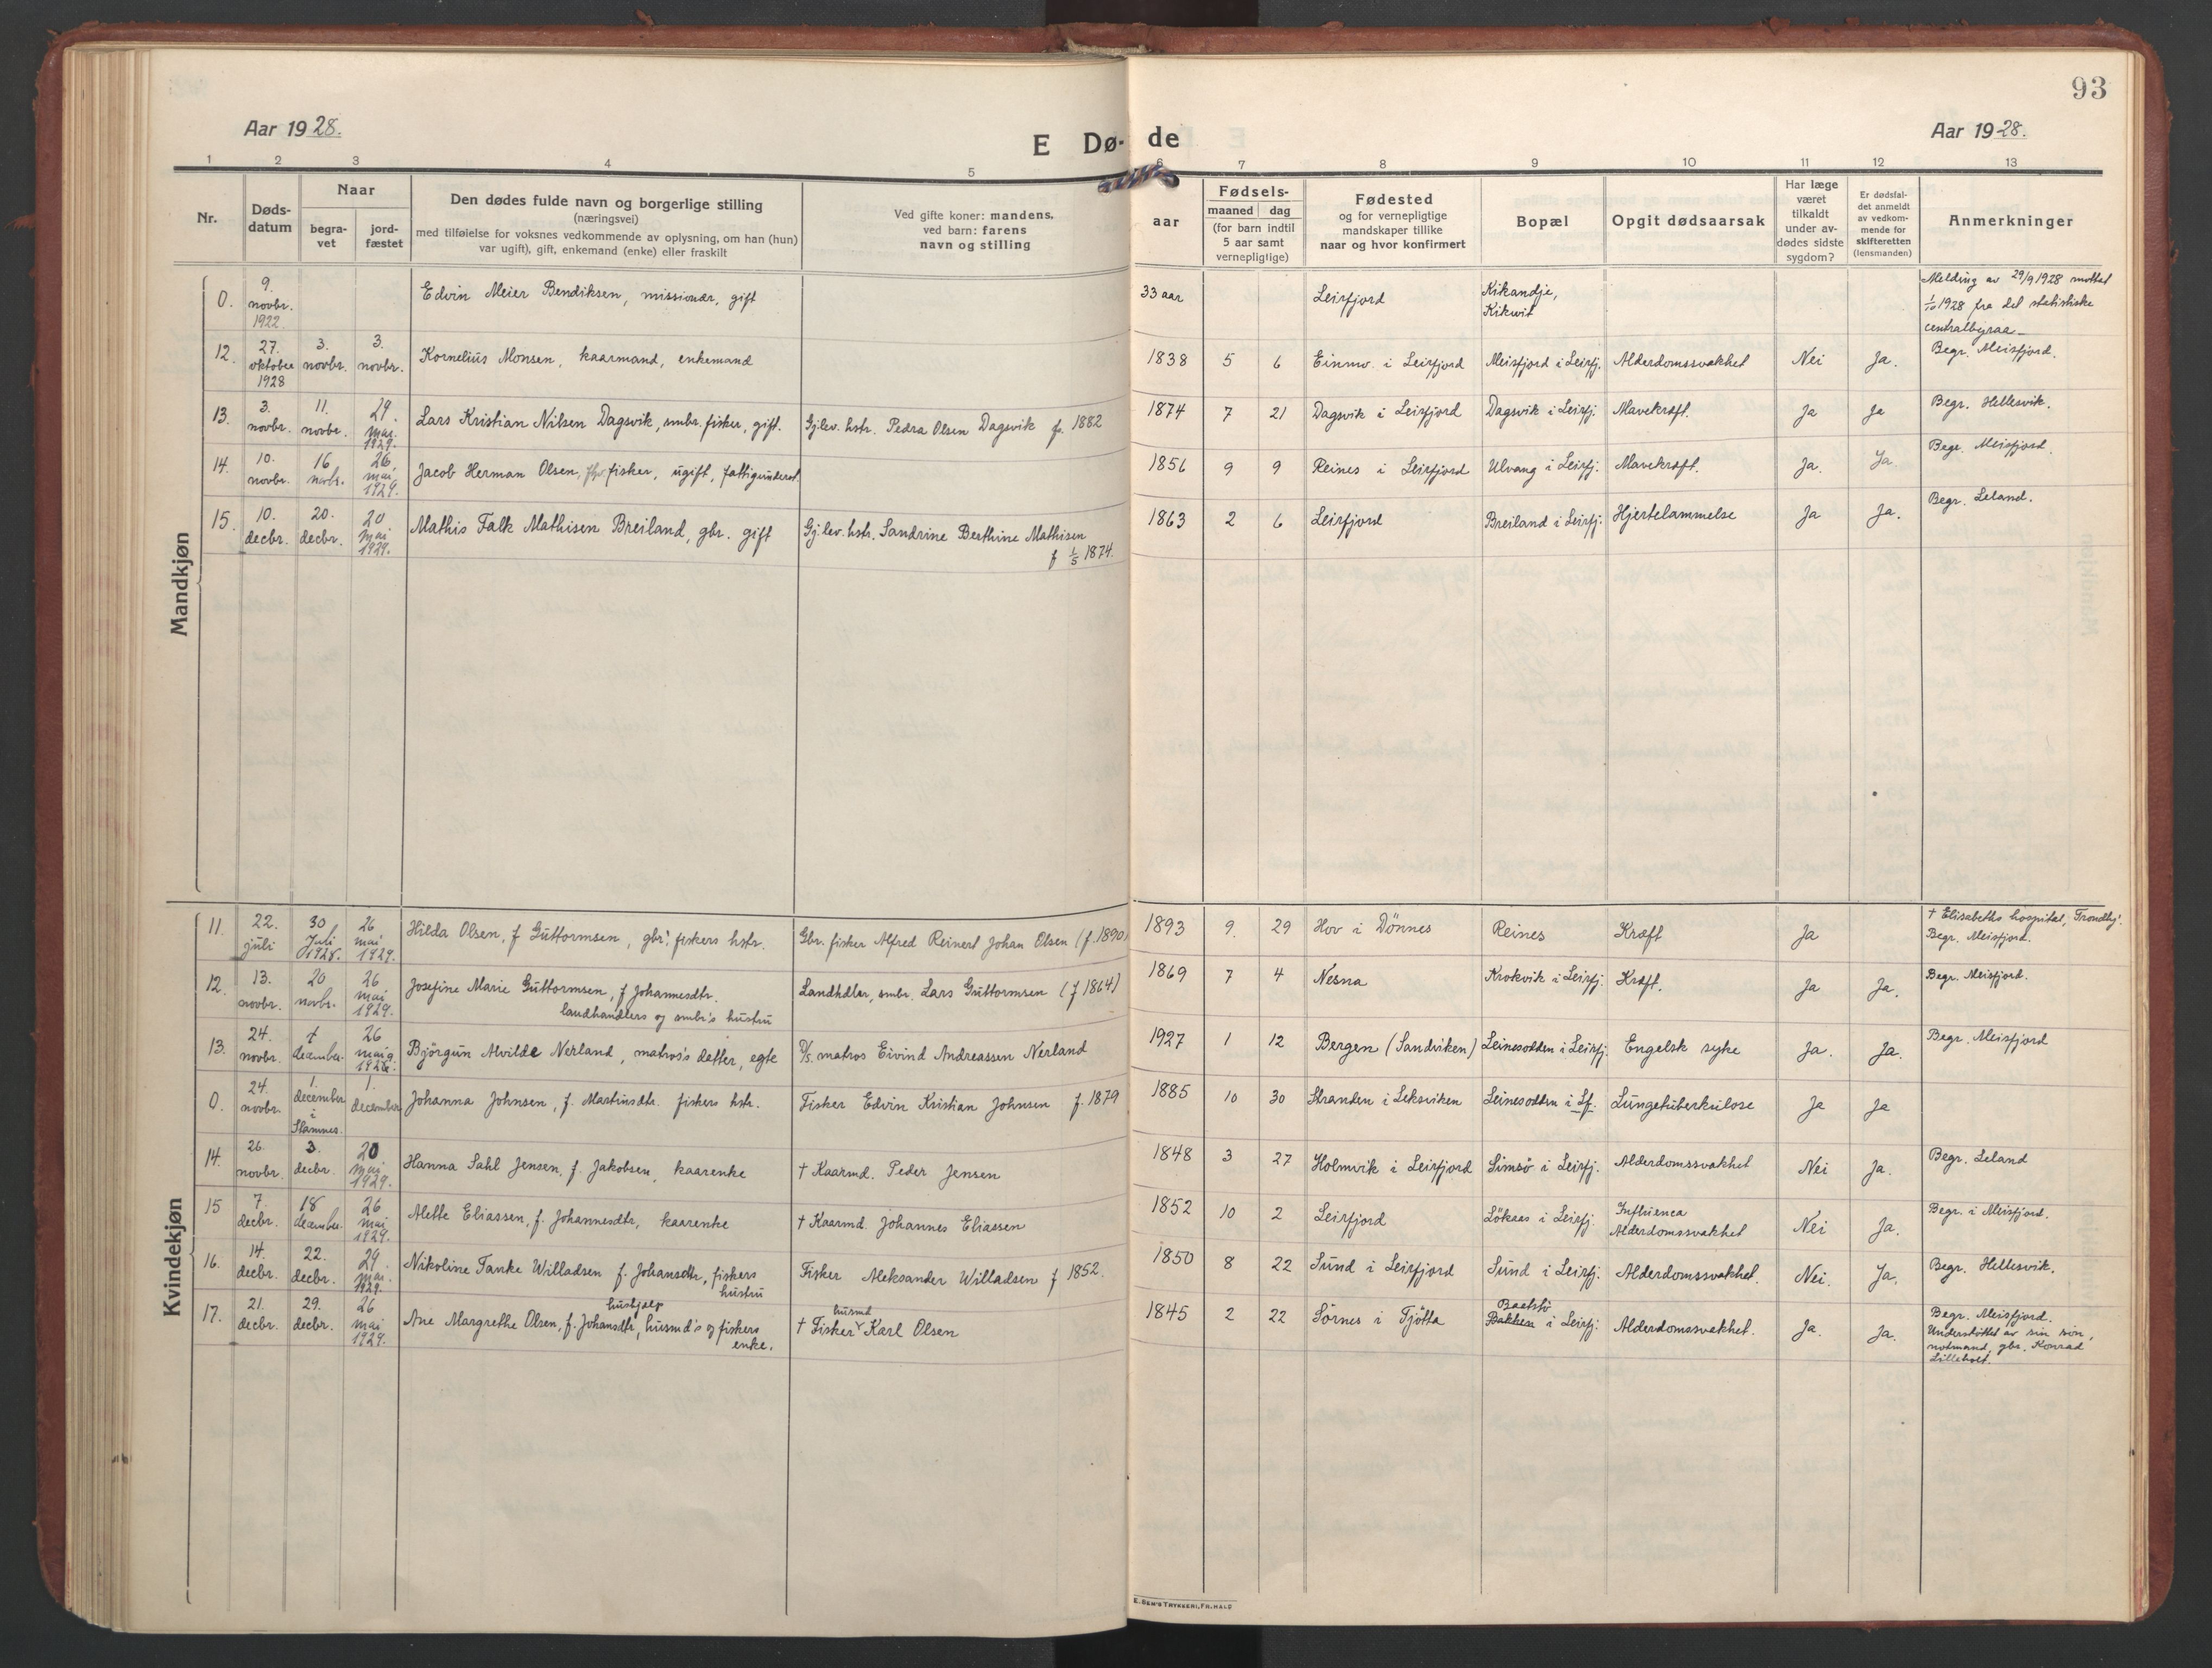 93
Aar 1928.
E Dø-de
Aar 1928.
1 2 3 4 5 6 7 8 9 10 11 12 13
Nr.
Døds-
datum
Naar
begra-
vet
jord-
fæstet
Den dødes fulde navn og borgerlige stilling
(næringsvei)
med tilføielse for voksnes vedkommende av oplysning, om han (hun)
var ugift), gift, enkemand (enke) eller fraskilt
Ved gifte koner: mandens,
ved barn: farens
navn og stilling
Fødsels-
aar
maaned dag
(for barn indtil
5 aar samt
vernepligtige)
Fødested
og for vernepligtige
mandskaper tillike
naar og hvor konfirmert
Bopæl
Opgit dødsaarsak
Har læge
været
tilkaldt
under av-
dødes sidste
sygdom?
Er dødsfal-
det anmeldt
av vedkom-
mende for
skifteretten
(lensmanden)
Anmerkninger
Mandkjøn
0. 9. novbr. 1922. Edvin Meier Bendiksen, missionær, gift 33 aar Leirfjord Kikandje, Kikwit Melding av 29/9 1928 mottat
1/10 1928 fra det statistiske
centralbyraa
12. 27. oktober 1928 3. novbr. 3. novbr. Kornelius Monsen, kaarmand, enkemand 1838 5 6 Einmo. i Leirfjord Meisfjord i Leirfj. Alderdomssvakhet Nei Ja. Begr. Meisfjord.
13. 3. novbr. 11. novbr. 29. mai. 1929. Lars Kristian Nilsen Dagsvik, smbr. fisker, gift. Gjlev. hstr. Pedra Olsen Dagsvik f. 1882 1874 7 21 Dagsvik i Leirfjord Dagsvik i Leirfj. Mavekræft. Ja Ja Begr. Hellesvik.
14. 10. novbr. 16 novbr. 26. mai 1929. Jacob Herman Olsen, fisker, ugift, fattigunderst. 1856 9 9 Reines i Leirfjord Ulvang i Leirfj. Mavekræft. Ja. Ja Begr. Meisfjord.
15. 10. decbr. 20. decbr. 20 mai 1929. Mathis Falk Mathisen Breiland, gbr. gift Gj.lev. hstr. Sandrine Berthine Mathisen
f 1/5 1874. 1863 2 6 Leirfjord Breiland i Leirfj. Hjertelammelse Ja Ja. Begr. Leland.
Kvindekjøn
11. 22. juli 30 Juli 1928. 26 mai 1929. Hilda Olsen, f Guttormsen, gbr', fiskers hstr. Gbr. fisker Alfred Reinert Johan Olsen (f. 1890) 1893 9. 29 Hov i Dönnes Reines Kræft Ja † Elisabeths hospital, Trondhj.
Begr. Meisfjord.
12. 13. novbr. 20 novbr. 26 mai 1929. Josefine Marie Guttormsen, f Johannesdtr.
landhandlers og smbr's hustru Landhdler, smbr. Lars Guttormsen (f 1864) 1869 7 4 Nesna Krokvik i Leirfj. Kræft. Ja Ja. Begr. Meisfjord.
13. 24. novbr. december 26 mai Björgun Alvilde Nerland, matros's datter, egte D/S. matros Eivind Andreassen Nerland 1927 1 12 Bergen (Sandviken) Leinesodden i Leirfj. Engelsk syke Ja. Ja. Begr. Meisfjord
0. 24. novbr. 1. december i Stamnes. 1. december Johanna Johnsen, f. Martinsdtr. fiskers hstr. Fisker Edvin Kristian Johnsen f. 1879 1885 10 30 Stranden i Leksviken Leinesodden i Lf. Lungetuberkulose Ja Ja
14. 26. novbr. 3. decbr. 20 mai 1929. Hanna Sahl Jensen, f. Jakobsen, kaarenke † Kaarmd. Peder Jensen 1848 3 27 Holmvik i Leirfjord Simsö i Leirfj. Alderdomssvakhet Nei Ja. Begr. Leland
15 7. decbr. 18 december 26 mai 1929. Alette Eliassen, f. Johannesdtr, kaarenke † Kaarmd. Johannes Eliassen 1852 10 2 Leirfjord Lökaas i Leirfj. Influenca
Alderdomssvakhet Nei Ja. Begr. i Meisfjord.
16. 14. decbr. 22. decbr. 29 mai. 1929. Nikoline Tanke Willadsen f. Johansdtr, fiskers
hustru Fisker Aleksander Willadsen f 1852. 1850 8 22 Sund i Leirfjord Sund i Leirfj. Alderdomssvakhet. Nei. Ja. Begr. Hellesvik.
17. 21. decbr. 29. decbr. 26 mai 1929. Ane Margrethe Olsen, f. Johansdtr, husmd's og fiskers
enke. husmd † Fisker Karl Olsen 1845 2 22 Sörnes i Tjötta Baatstö
Bakken i Leirfj. Alderdomssvakhet. Ja. Ja. Begr. Meisfjord.
Understöttet av sin sön,
notmand, gbr. Konrad
Lilleholt.
E. SEM'S TRYKKERI, FR.HALD